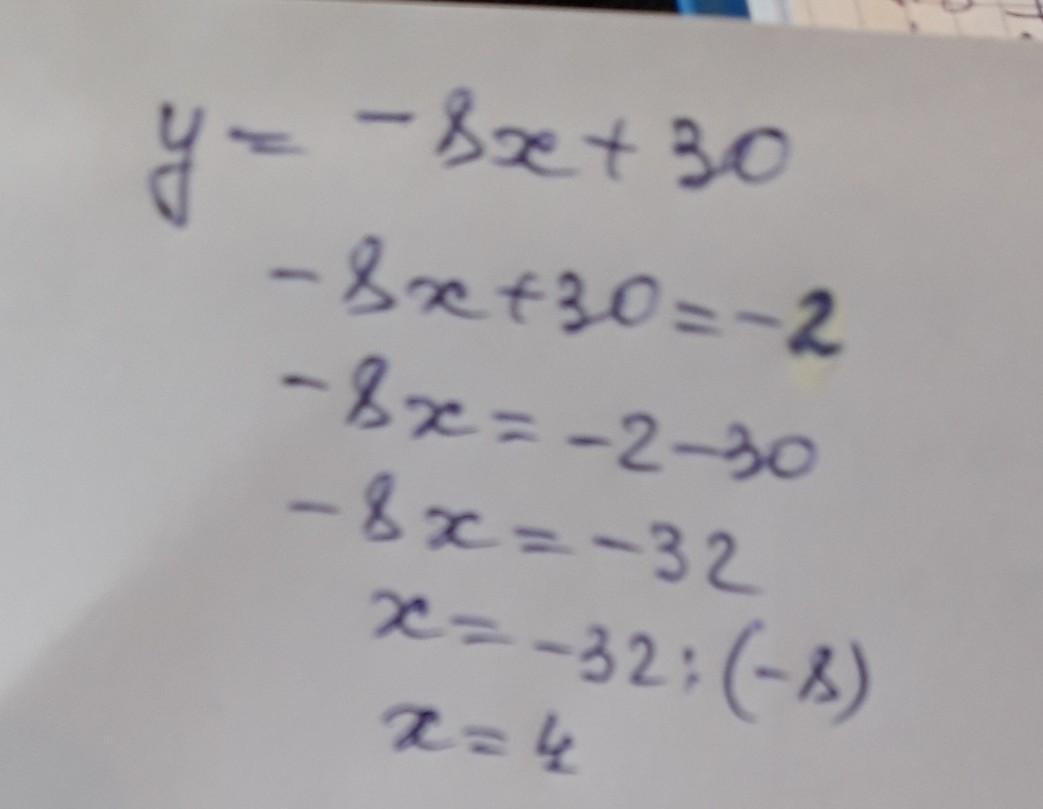 y = -8x + 30
-8x + 30 = -2
-8x = -2 - 30
-8x = -32
x = -32 : (-8)
x = 4